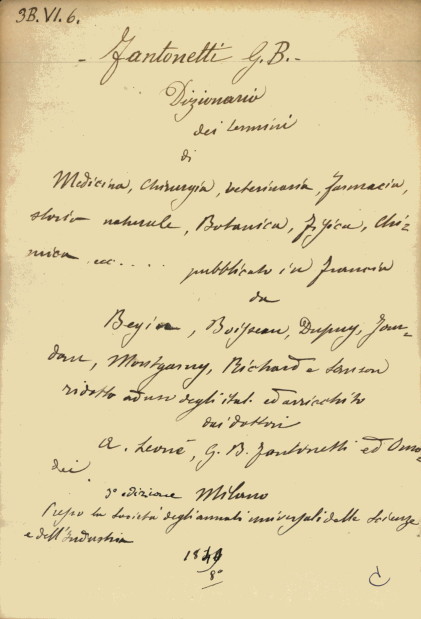 3B. VI. 6.
- Fantonetti G. B. -
Dizionario
dei termini
di
Medicina, chirurgia, veterinaria, farmacia,
storia naturale, Botanica, Fisica, Chi=
mica, ecc..... pubblicato in Francia
da
Begin, Boisseau, Dupuy, Jour=
dan, Montgarny, Richard e Sanson
ridotto ad uso degli ital. ed arricchito
dai dottori
A. Leone, G. B. Fantonetti ed Omo=
dei
3ª edizione Milano
Presso la società degli annali universali delle Scienze
e dell'Industria
8º
C